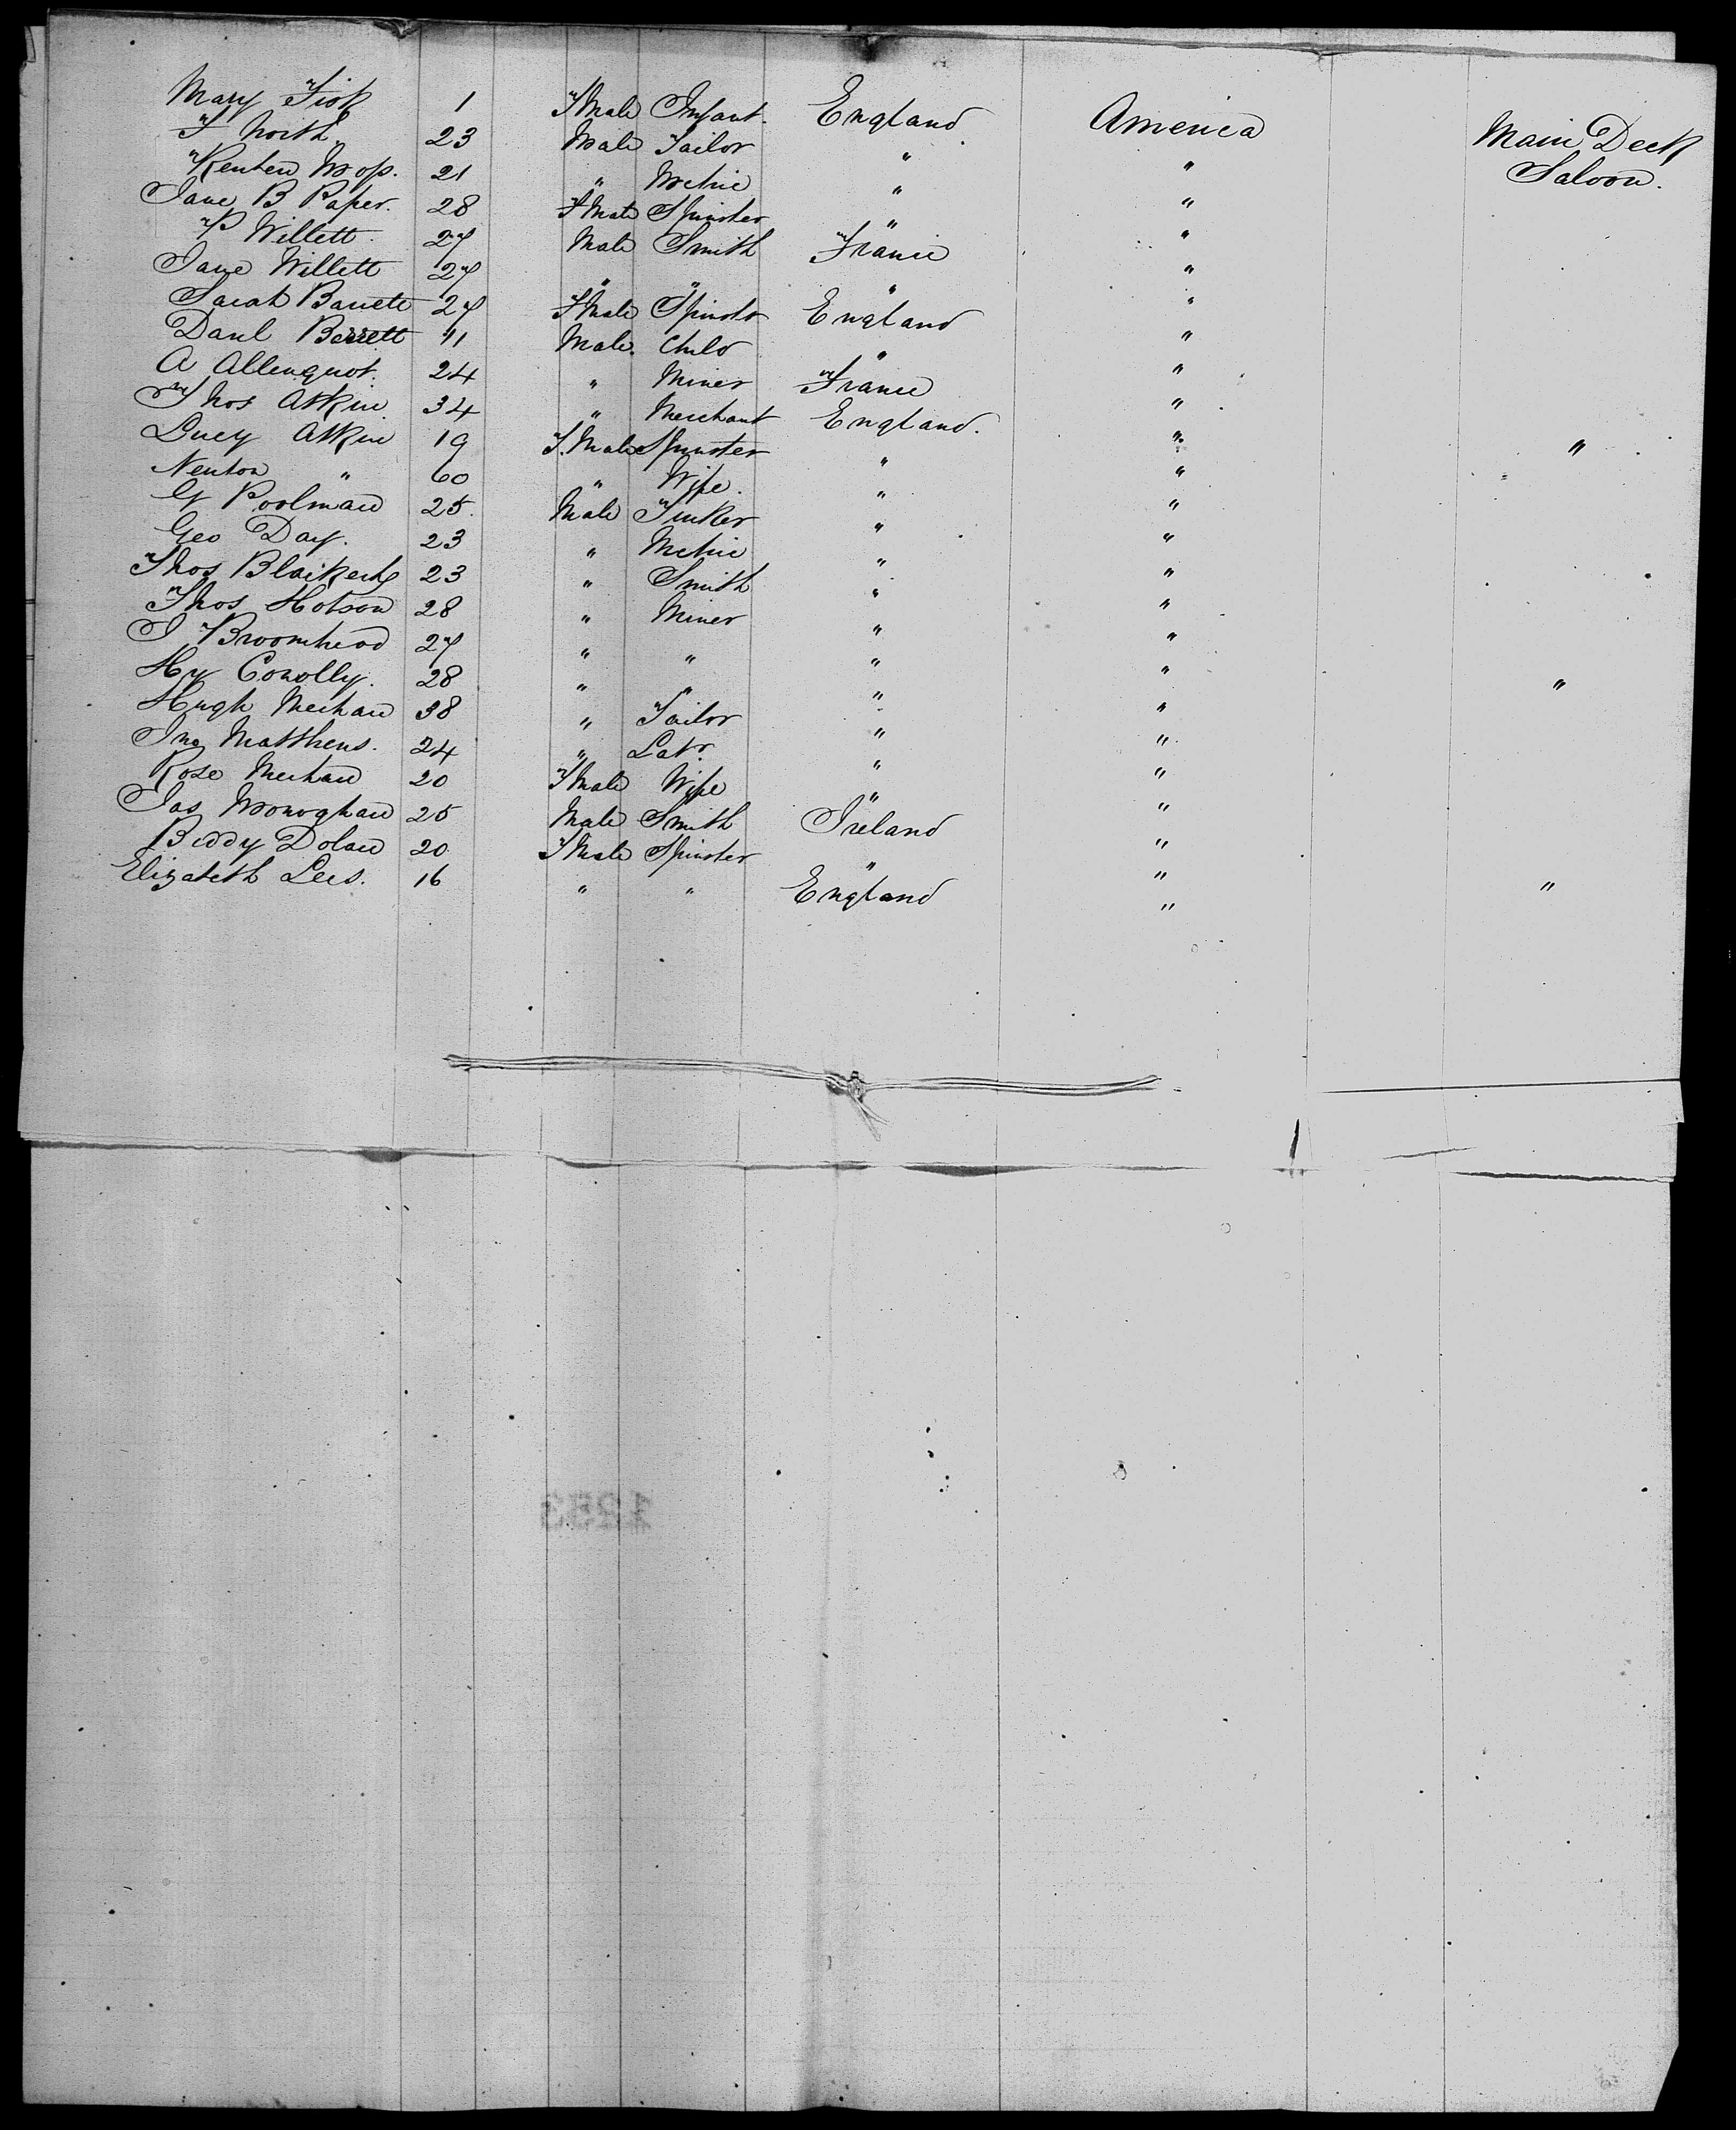 Mary Fisk 1 F Male Infant. England America Main Deck
F North 23 Male Tailor " " Saloon.
Kenten Moss. 21 " Mchnc " "
Jane B Raper. 28 F Male Spinster " "
P Willett. 27 Male Smith France "
Jane Willett 27 " " " "
Sarah Barrett 27 F Male Spinstr England "
Danl Barrett 11 Male. Child " "
A Allenquot. 24 " Miner France "
Thos Atkin 34 " Merchant England. "
Lucy Atkin 19 F. Male Spinster " " "
Newton " 60 " Wife. " "
G Poolman 25. Male Tinker " "
Geo Day. 23 " Mchnc " "
Thos 23 " Smith " "
Thos Hotson 28 " Miner " "
J Broomhead 27 " " " "
Hy Conolly. 28 " " " " "
Hugh Meehan 38 " Tailor " "
Jno Matthews. 24 " Labr. " "
Rose Meehan 20 F Male Wife " "
Jas Monoghan 25 Male Smith Ireland "
Biddy Dolan 20 F Male Spinster " "
Elizabeth Lees. 16 " " England " "
1253